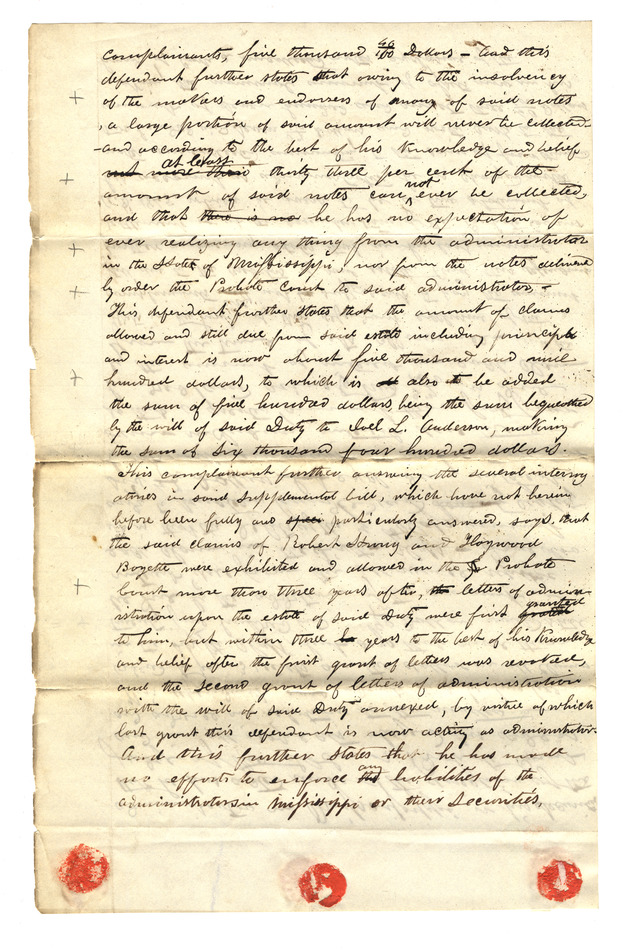 complainants, five thousand 40/100 Dollars – And this
defendant further states that owing to the insolvency
of the makers and endorsers of many of said notes
, a large portion of said amount will never be collected –
- and according to the best of his knowledge and belief
at least
and more than thirty three per cent of the
amount of said notes can not ever be collected,
and that there is no he has no expectation of
ever realizing any thing from the administrator
in the State of Mississippi, nor from the notes delivered
by order the Probate Court to said administrator, –
This, defendant further states that the amount of claims
allowed and still due from said estate including principle
and interest is now about five thousand and nine
hundred dollars, to which is also to be added
the sum of five hundred dollars, being the sum bequeathed
by the will of said Duty to Joel L. Anderson, making
the sum of Six thousand four hundred dollars.
This complainant further answering the several interrog
atories in said Supplemental bill, which have not herein
before been fully and particularly answered, says, that
the said claims of Robert Strong and Haywood
Boyette were exhibited and allowed in the Probate
Court more than three years after, the letters of admini
stration upon the estate of said Duty were first granted
to him, but within three years to the best of his knowledge
and belief after the first grant of letters was revoked,
and the second grant of letters of administration
with the will of said Duty annexed, by virtue of which
last grant this defendant is now acting as administrator.
And this further states that he has made
no efforts to enforce any the liabilities of the
administrators in Mississippi or their Securities,